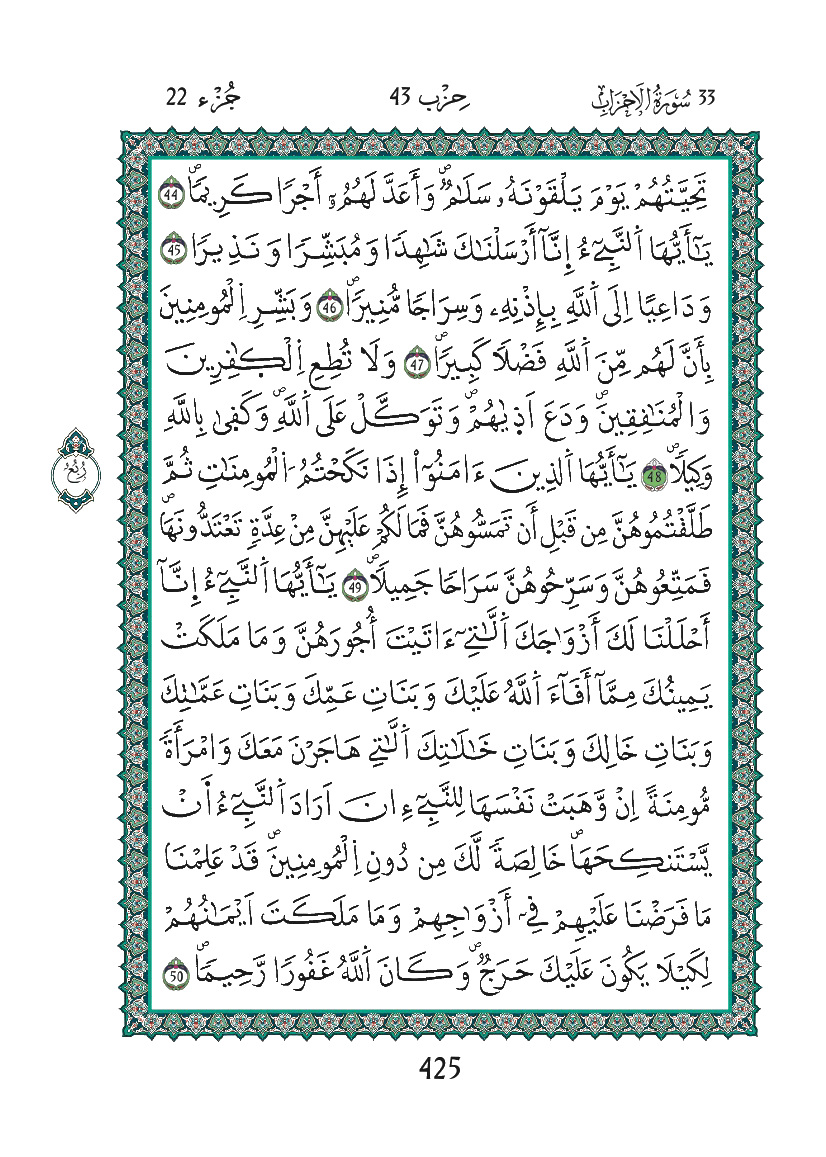 33 سُورَةُ الْأَحْزَابِ حِزْب 43 جُزْء 22
تَحِيَّتُهُمْ يَوْمَ يَلْقَوْنَهُۥ سَلَٰمٌۖ وَأَعَدَّ لَهُمُۥٓ أَجْرٗا كَرِيمٗاۖ 44
يَٰٓأَيُّهَا اَ۬لنَّبِےٓءُ انَّآ أَرْسَلْنَٰكَ شَٰهِدٗا وَمُبَشِّرٗا وَنَذِيرٗا 45
وَدَاعِيًا إِلَى اَ۬للَّهِ بِإِذْنِهِۦ وَسِرَاجٗا مُّنِيرٗاۖ 46 وَبَشِّرِ اِ۬لْمُومِنِينَ
بِأَنَّ لَهُم مِّنَ اَ۬للَّهِ فَضْلٗا كَبِيرٗاۖ 47 وَلَا تُطِعِ اِ۬لْكٰ۪فِرِينَ
وَالْمُنَٰفِقِينَۖ وَدَعَ اَذ۪يٰهُمْۖ وَتَوَكَّلْ عَلَى اَ۬للَّهِۖ وَكَف۪يٰ بِاللَّهِ
وَكِيلٗاۖ 48 يَٰٓأَيُّهَا اَ۬لذِينَ ءَامَنُوٓاْ إِذَا نَكَحْتُمُ اُ۬لْمُومِنَٰتِ ثُمَّ
طَلَّقْتُمُوهُنَّ مِن قَبْلِ أَن تَمَسُّوهُنَّ فَمَا لَكُمْ عَلَيْهِنَّ مِنْ عِدَّةٖ تَعْتَدُّونَهَاۖ
فَمَتِّعُوهُنَّ وَسَرِّحُوهُنَّ سَرَاحٗا جَمِيلٗاۖ 49 يَٰٓأَيُّهَا اَ۬لنَّبِےٓءُ إِنَّآ
أَحْلَلْنَا لَكَ أَزْوَٰجَكَ اَ۬لَّٰتِےٓ ءَاتَيْتَ أُجُورَهُنَّ وَمَا مَلَكَتْ
يَمِينُكَ مِمَّآ أَفَآءَ اَ۬للَّهُ عَلَيْكَ وَبَنَاتِ عَمِّكَ وَبَنَاتِ عَمَّٰتِكَ
وَبَنَاتِ خَالِكَ وَبَنَاتِ خَٰلَٰتِكَ اَ۬لَّٰتِے هَاجَرْنَ مَعَكَ وَامْرَأَةٗ
مُّومِنَةً إِنْ وَّهَبَتْ نَفْسَهَا لِلنَّبِےٓءِ انَ اَرَادَ اَ۬لنَّبِےٓءُ أَنْ
يَّسْتَنكِحَهَاۖ خَالِصَةٗ لَّكَ مِن دُونِ اِ۬لْمُومِنِينَۖ قَدْ عَلِمْنَا
مَا فَرَضْنَا عَلَيْهِمْ فِےٓ أَزْوَٰجِهِمْ وَمَا مَلَكَتَ اَيْمَٰنُهُمْ
لِكَيْلَا يَكُونَ عَلَيْكَ حَرَجٞۖ وَكَانَ اَ۬للَّهُ غَفُورٗا رَّحِيمٗاۖ 50
رُبُعُ
425